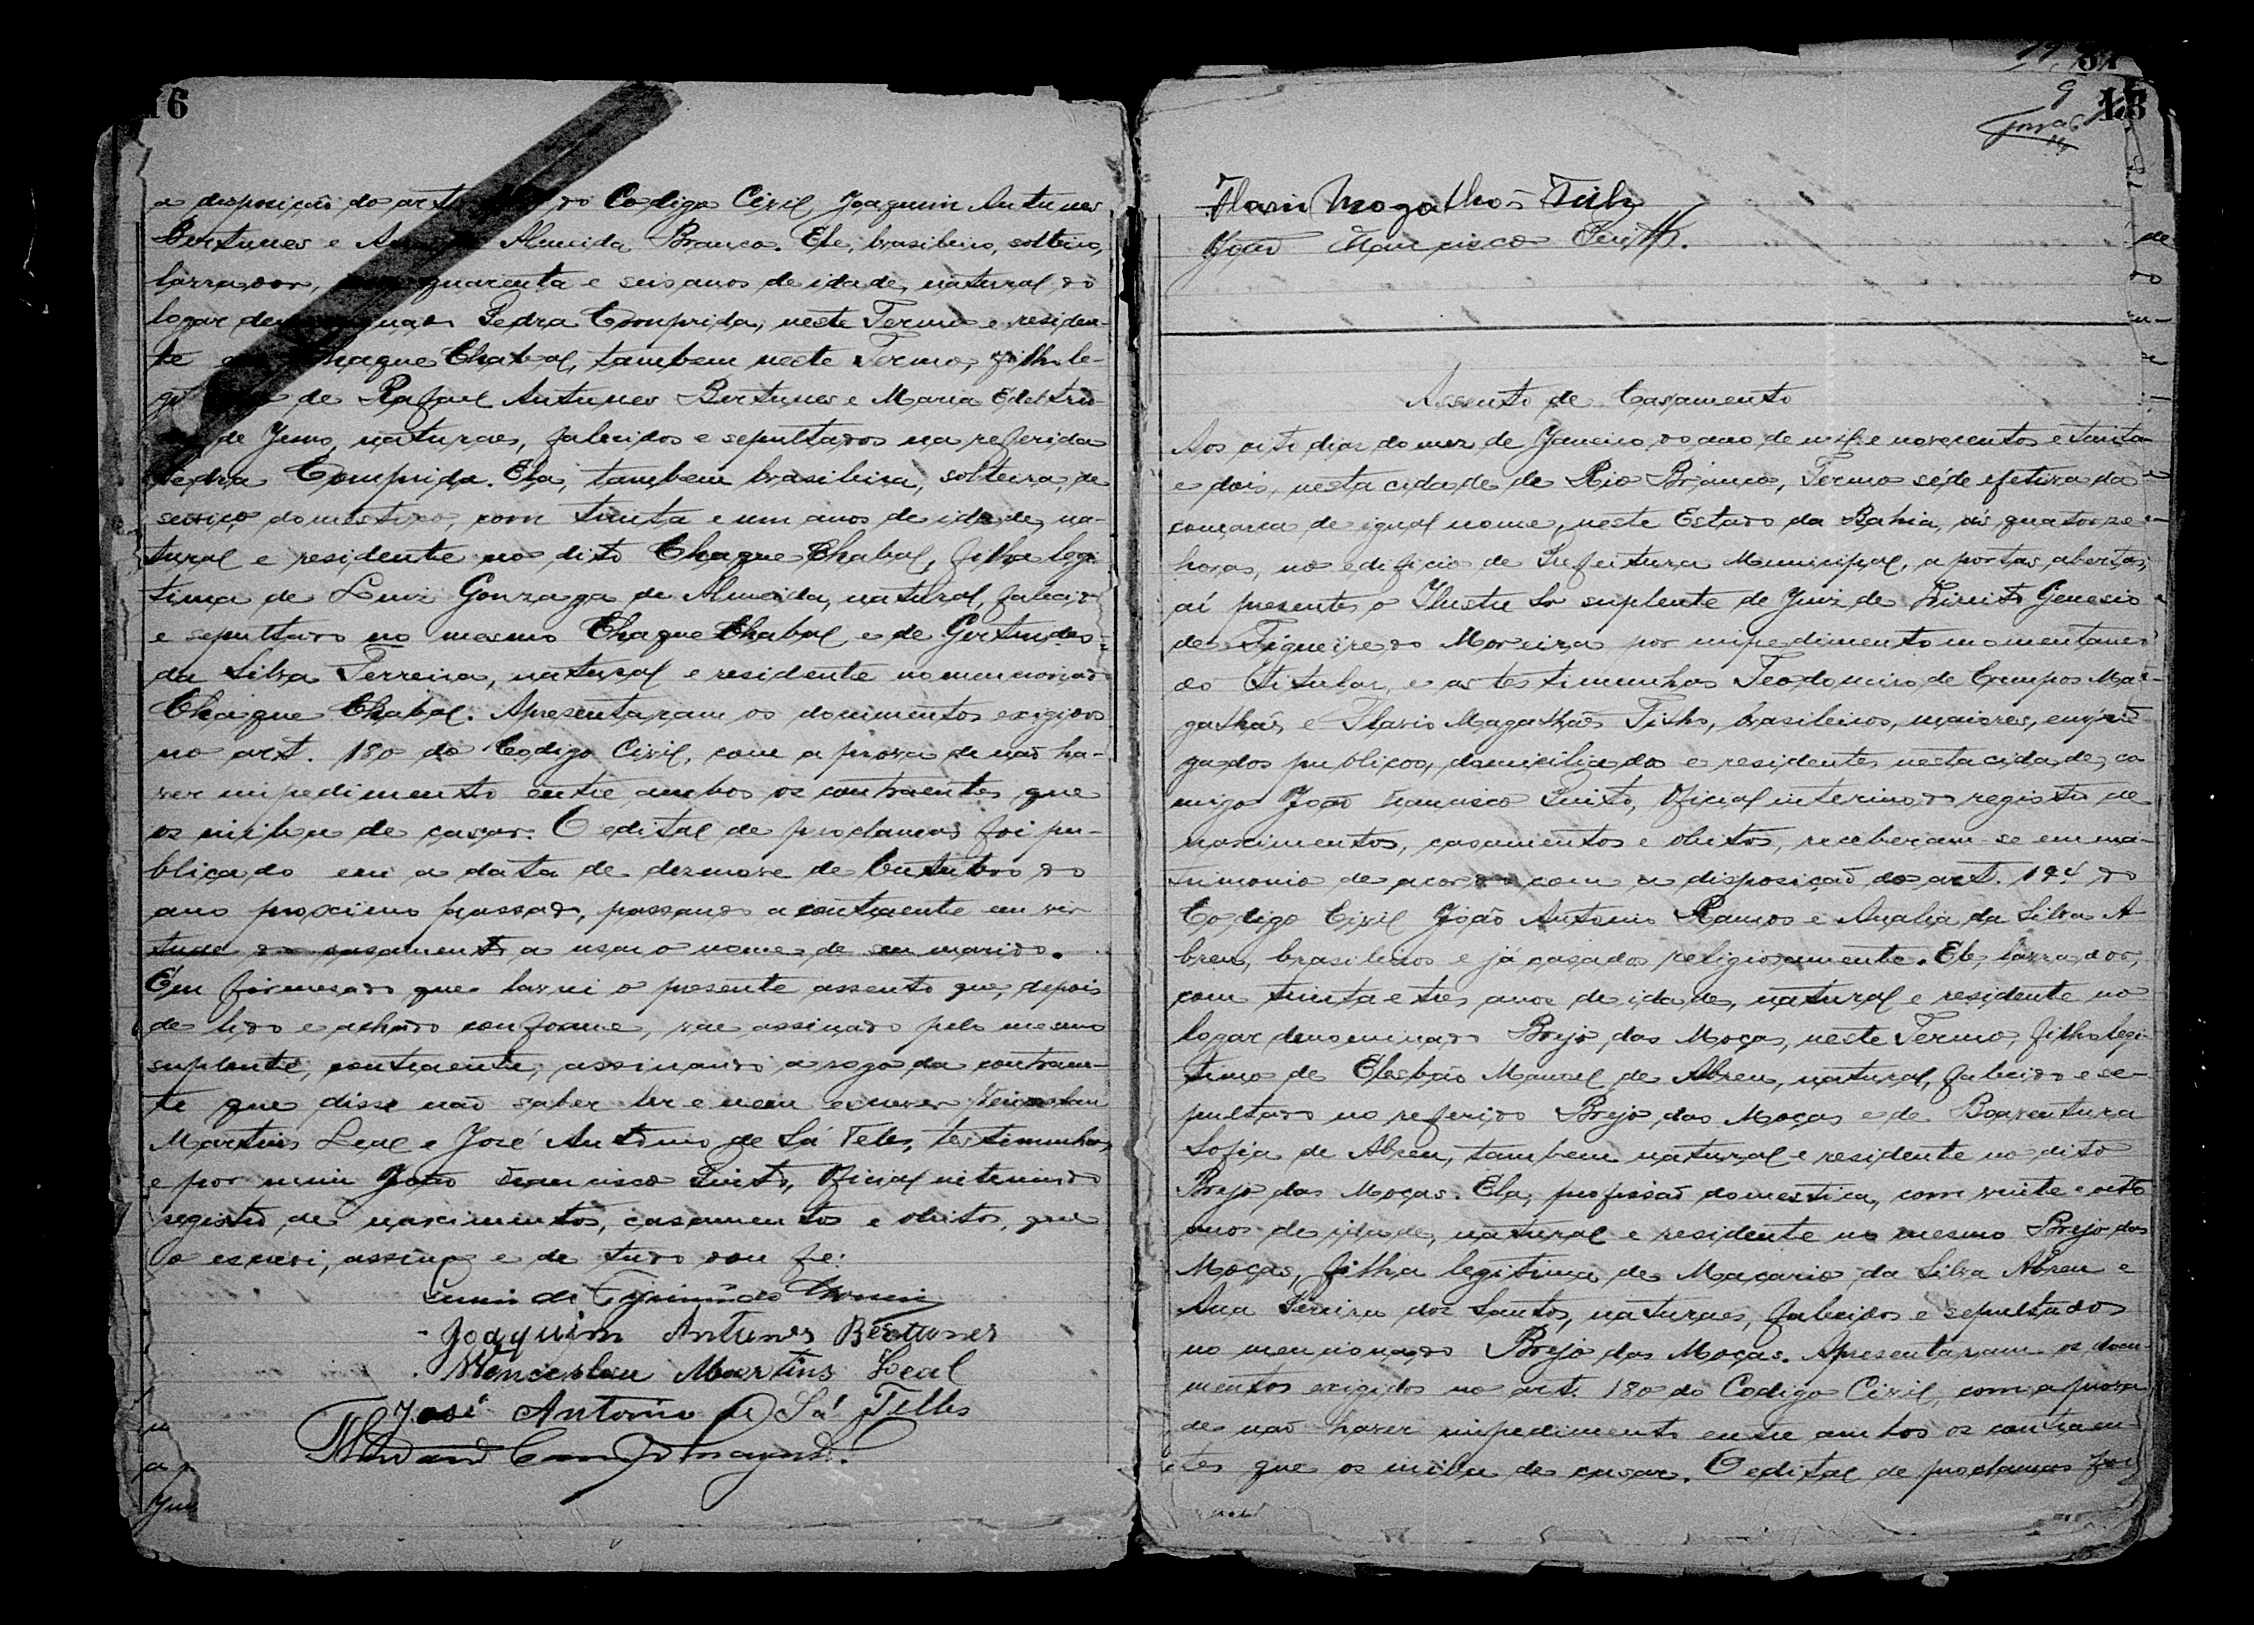 16
a disposição do art. do Codigo Civil Joaquim Antunes
Bertunes e Almeida Branco. Ele, brasileiro, solteiro,
lavrador, quarenta e seis anos de idade, natural do
logar Pedra Comprida, neste Termo e residen-
te Chaque Chabal, tambem neste Termo, filho le-
de Rafael Antunes Bertunes e Maria
de Jesus, naturaes, falecidos e sepultados na referida
Pedra Comprida. Ela, tambem brasileira, solteira, de
serviço domestico, com trinta e um anos de idade, na-
tural e residente no dito Chaque Chabal, filha legi-
tima de Luiz Gonzaga de Almeida, natural, falecido
e sepultado no mesmo Chaque Chabal, e de Gertrudes
da Silva Ferreira, natural e residente no mencionado
Chaque Chabal. Apresentaram os documentos exigidos
no art. 180 do Codigo Civil, com a prova de não ha-
ver impedimento entre ambos os contraentes que
os iniba de casar. O edital de proclamas foi pu-
blicado em a data de dezenove de Outubro do
ano proximo passado, passando a contraente em vir-
tude do casamento a usar o nome de seu marido.
Em firmesa do que lavrei o presente assento que, depois
de lido e achado conforme, vae assinado pelo mesmo
suplente, contraente, assinando a rogo da contraen-
te que disse não saber ler e nem escrever Venceslau
Martins Leal e José Antonio de Sá Teles, testemunhas,
e por mim João Francisco Pinto, Oficial interino do
registro de nascimentos, casamentos e obitos, que
o escrevi, assino e de tudo dou fé.
Joaquim Antunes Bertunes
Wenceslau Martins Leal
José Antonio de Sá Telles
18
Flavio Magalhães Filho
João Francisco Pinto.
Assento de Casamento
Aos oito dias do mez de Janeiro do ano de mil e novecentos e trinta
e dois, nesta cidade de Rio Branco, Termo séde efetiva da
comarca de igual nome, neste Estado da Bahia, ás quatorze
horas, no edificio de Prefeitura Municipal, a portas abertas,
aí presentes o Ilustre Sr suplente de Juiz de Direito Genesio
de Figueiredo Moreira por impedimento momentaneo
do titular, e as testimunhas Teodomiro de Campos Ma-
galhães e Flavio Magalhães Filho, brasileiros, maiores, empre-
gados publicos, domiciliados e residentes nesta cidade, co
migo João Francisco Pinto, Oficial interino do registro de
nascimentos, casamentos e obitos, receberam-se em ma-
trimonio de acordo com a disposição do art. 194 do
Codigo Civil João Antonio Ramos e Analia da Silva A-
breu, brasileiros e já casados religiosamente. Ele, lavrador,
com trinta e tres anos de idade, natural e residente no
logar denominado Brejo das Moças, neste Termo, filho legi-
timo de Elesbão Manoel de Abreu, natural, falecido e se-
pultado no referido Brejo das Moças e de Boaventura
Sofia de Abreu, tambem natural e residente no dito
Brejo das Moças. Ela, profissão domestica, com vinte e oito
anos de idade, natural e residente no mesmo Brejo das
Moças, filha legitima de Macario da Silva Abreu e
Ana Pereira dos Santos, naturaes, falecidos e sepultados
no mencionado Brejo das Moças. Apresentaram os docu-
mentos exigidos no art. 180 do Codigo Civil, com a prova
de não haver impedimento entre ambos os contraen-
tes que os iniba de casar. O edital de proclamas foi